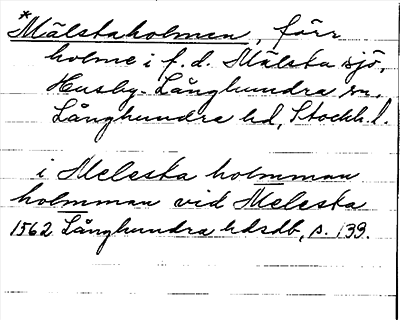 *Mälstaholmen, förr
holme i f.d. Mälsta sjö,
Husby-Långhundra sn,
Långhundra hd, Stockh. l.
i Melesta holmman
holmman vid Melesta
1562 Långhundra hdsdb, s. 139.